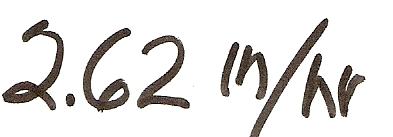 2.62 in/hr